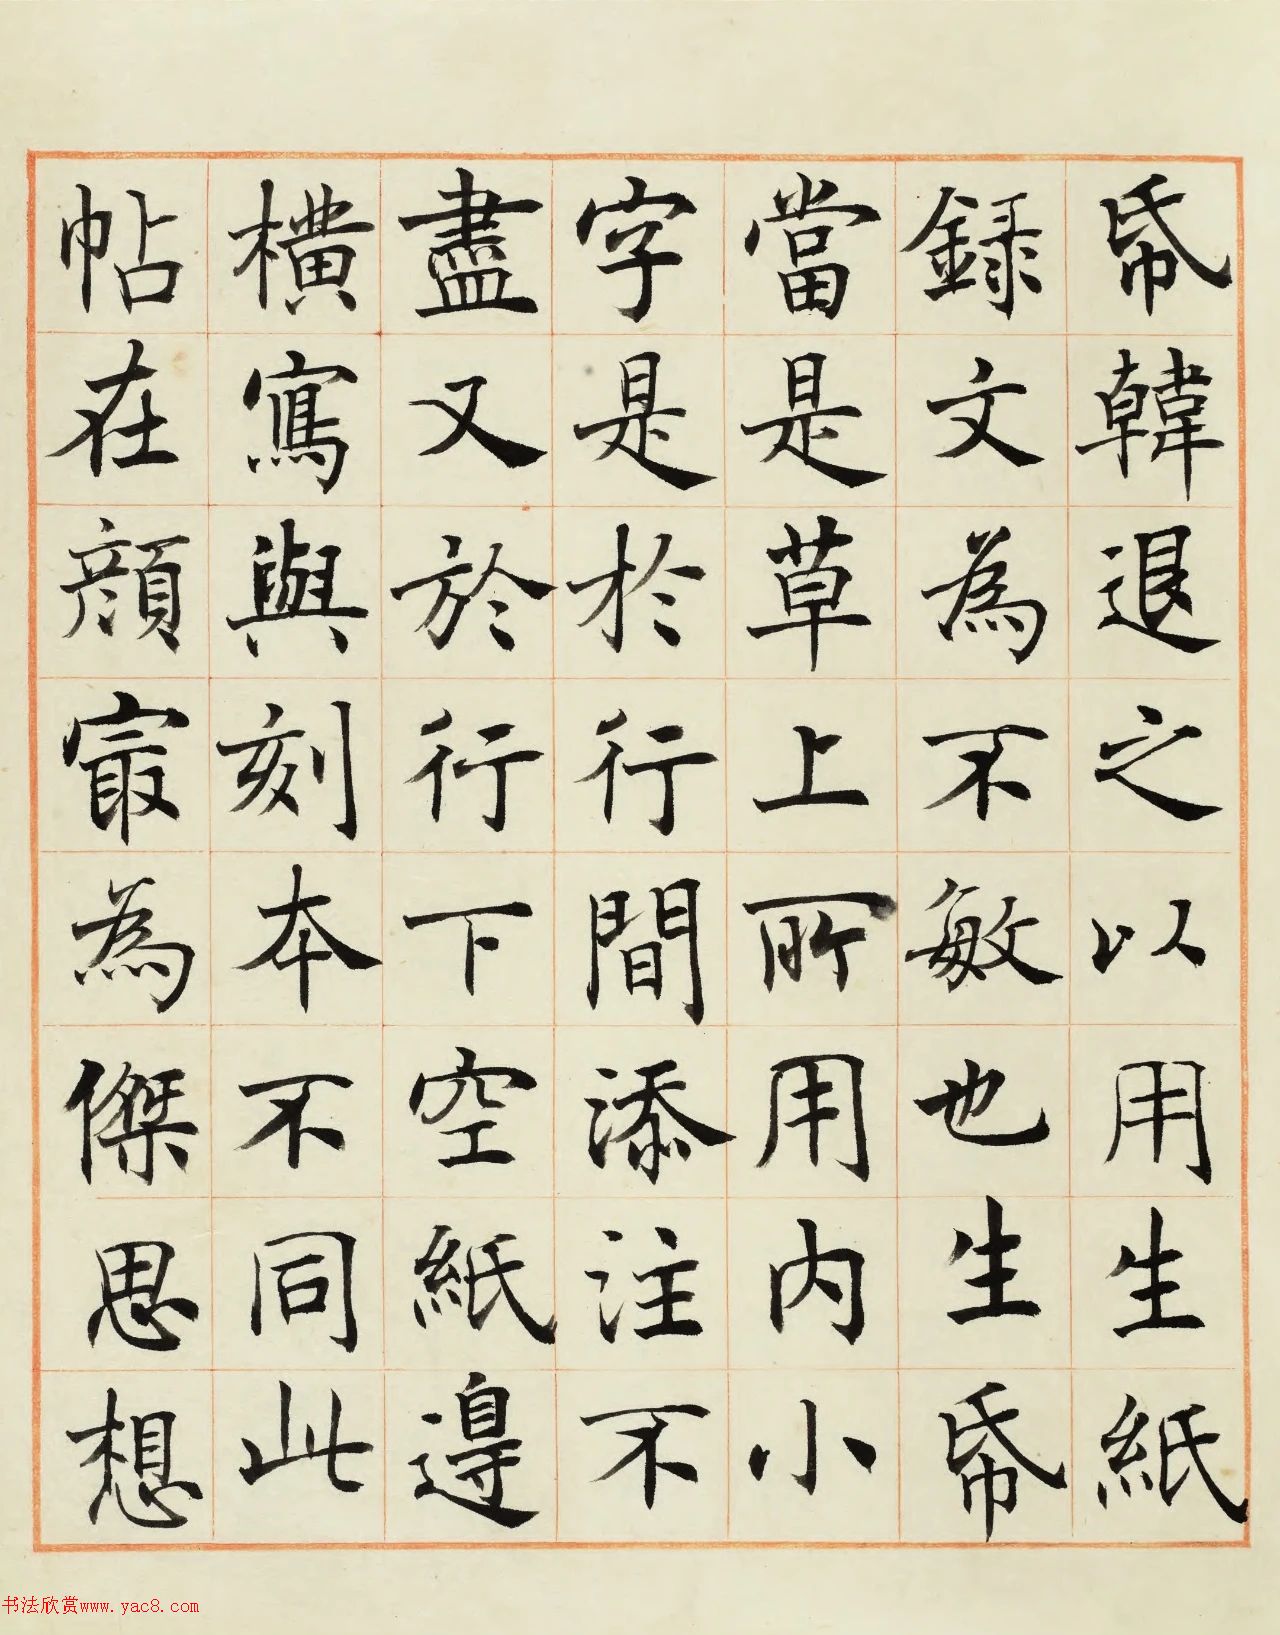 帋韓退之以用生紙
録文為不敏也生帋
當是草上所用内小
字是於行間添注不
盡又於行下空紙邉
横寫與刻本不同此
帖在顔㝡為傑思想
书法欣赏www.yac8.com